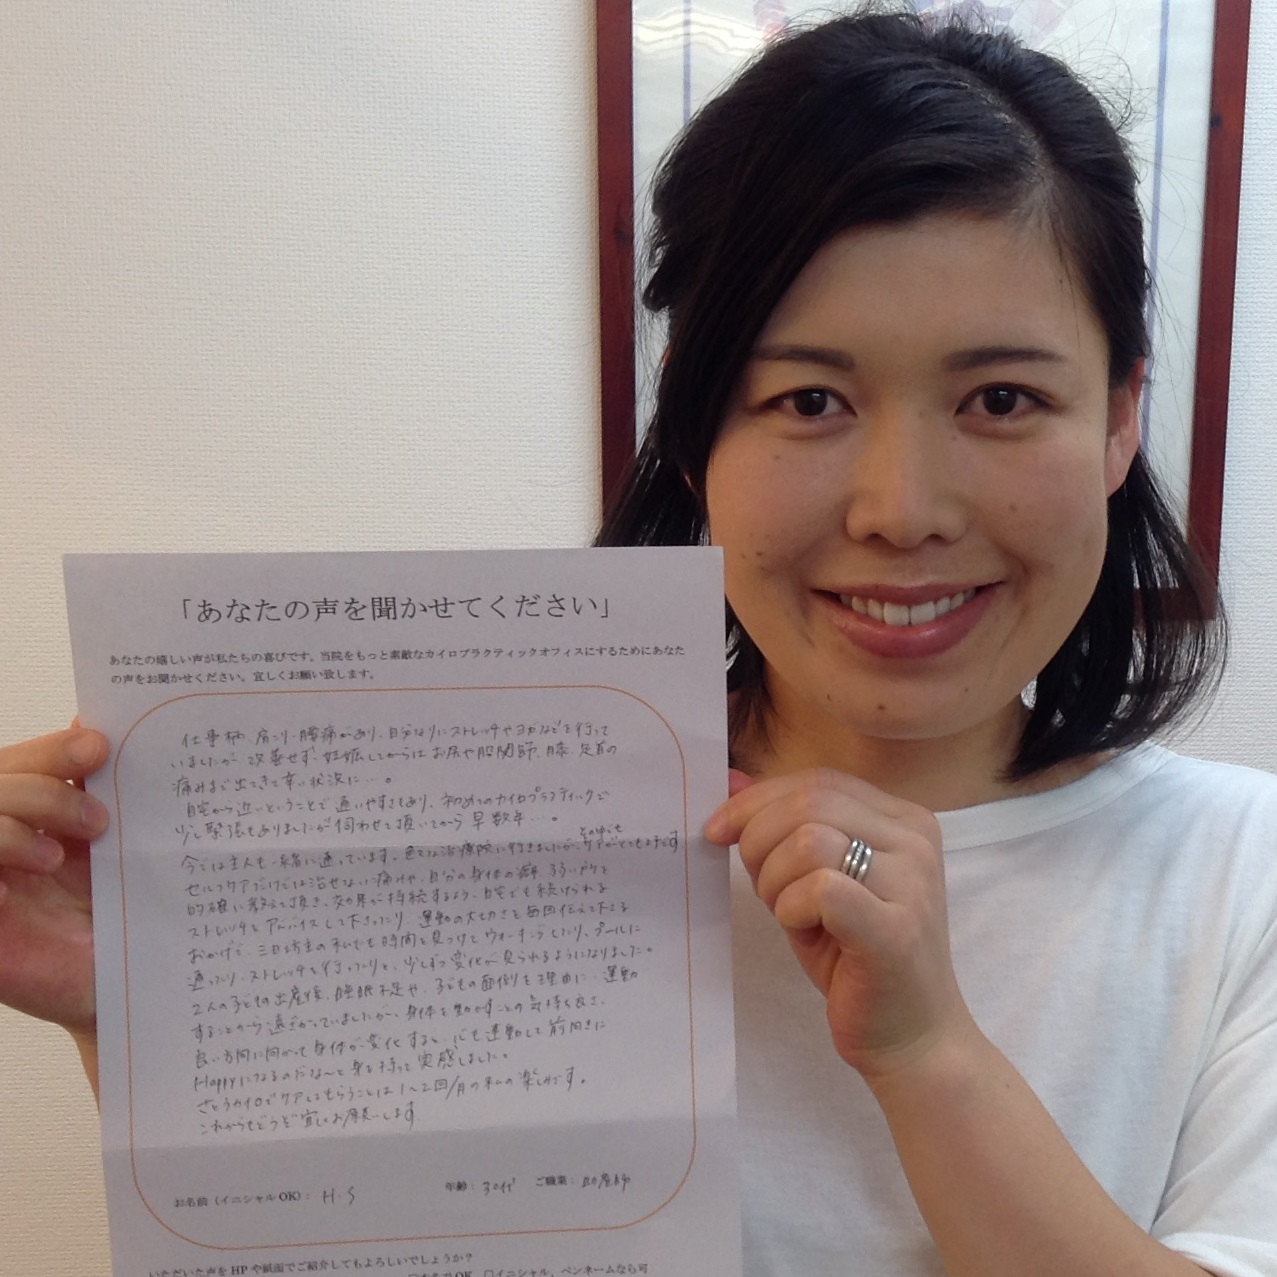 「あなたの声を聞かせてください」
あなたの嬉しい声が私たちの喜びです。当院をもっと素敵なカイロプラクティックオフィスにするためにあなた
の声をお聞かせください。宜しくお願い致します。
仕事柄、肩こり・腰痛があり、自分なりにストレッチやヨガなどを行って
いましたが、改善せず、妊娠してからはお尻や股関節、膝、足首の
痛みまで出てきて辛い状況に…。
自宅から近いということで通いやすさもあり、初めてのカイロプラクティックで
少し緊張もありましたが伺わせて頂いてから早数年…。
その中でも
今では主人も一緒に通っています。色々な治療院に行きましたが、ケアがとても上手です
セルフケアだけでは治せない痛みや、自分の身体の癖、弱い所を
的確に教えて頂き、効果が持続するよう、自宅でも続けられる
ストレッチをアドバイスして下さったり、運動の大切さを毎回伝えて下さる
おかげで、三日坊主の私でも時間を見つけてウォーキングしたり、プールに
通ったり、ストレッチを行ったりと、少しずつ変化が見られるようになりました。
2人の子どもの出産後、睡眠不足や、子どもの面倒を理由に、運動
することから遠ざかっていましたが、身体を動かすことの気持ち良さ、
良い方向に向かって身体が変化すると、心も運動して前向きに
Happyになるのだな〜と身を持って実感しました。
さとうカイロでケアしてもらうことは1〜2回/月の私の楽しみです。
これからもどうぞ宜しくお願いします
お名前（イニシャルOK）：H.S 年齢：30代 ご職業：助産師
いただいた声をHPや紙面でご紹介してもよろしいでしょうか？
OK、□イニシャル、ペンネームなら可